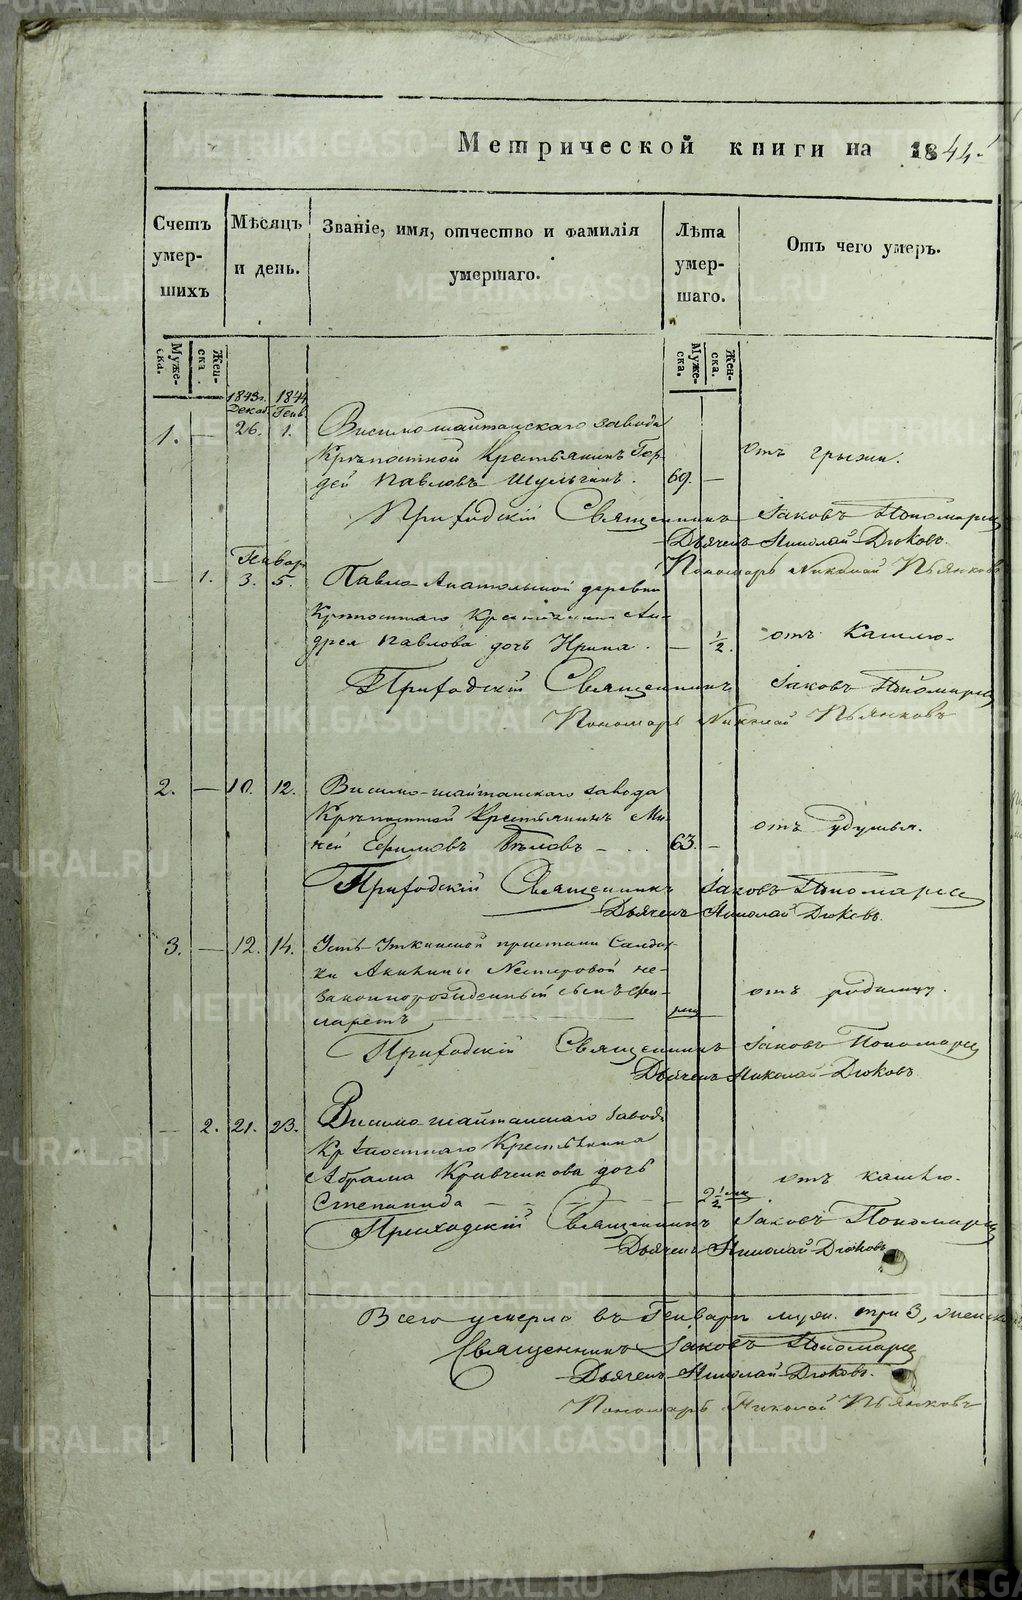 Метрической книги на 1844.
Счетъ умер-шихъ
Мѣсяцъ и день.
Званіе, имя, отчество и фамилія умершаго.
Лѣта умер-шаго.
Отъ чего умеръ.
Муже-ска.
Жен-ска.
Муже-ска.
Жен-ска.
1843 г. 1844
Декаб. Генв.
1. — 26. 1. Висимо-шайтанскаго завода
Крѣпостной Крестьянинъ Гор-
дей Павловъ Шульгинъ. 69. — отъ грыжи.
Приходскій Священникъ Іаковъ Пономаревъ
Дьячекъ Николай Дюковъ.
Пономарь Николай Пьянковъ
Январ
— 1. 3. 5. Павло-Анатольской деревни
Крѣпостнаго Крестьянина Ан-
дрея Павлова дочь Ирина. — 1/2. отъ Кашлю.
Приходскій Священникъ Іаковъ Пономаревъ
Пономарь Николай Пьянковъ
2. — 10. 12. Висимо-шайтанскаго завода
Крѣпостной Крестьянинъ Ми-
ней Ефимовъ Бѣловъ — 63. — отъ удушья.
Приходскій Священникъ Іаковъ Пономаревъ
Дьячекъ Николай Дюковъ.
3. — 12. 14. Усть-Уткинской пристани Солдат-
ки Акилины Нестеровой не-
законнорожденный сынъ Фи-
ларетъ — отъ родимцу.
Приходскій Священникъ Іаковъ Пономаревъ
Дьячекъ Николай Дюковъ
— 2. 21. 23. Висимо-шайтанскаго завода
Крѣпостнаго Крестьянина
Абрама Кравченкова дочь
Степанида — 2 1/2 отъ кашлю.
Приходскій Священникъ Іаковъ Пономаревъ
Дьячекъ Николай Дюковъ
Всего умерло въ Генварѣ муж. три 3, женска
Священникъ Іаковъ Пономаревъ
Дьячекъ Николай Дюковъ.
Пономарь Николай Пьянковъ
METRIKI.GASO-URAL.RU